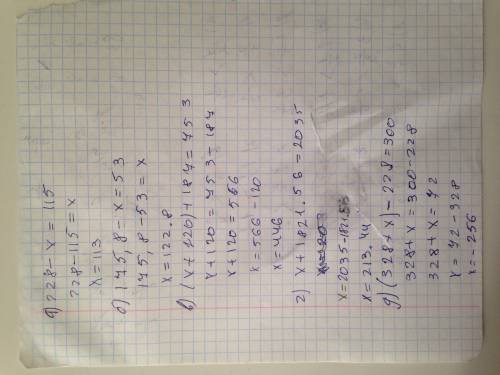 а) 228 - x = 115
228 - 115 = x
x = 113
б) 175,8 - x = 53
175,8 - 53 = x
x = 122.8
в) (x + 120) + 187 = 753
x + 120 = 753 - 187
x + 120 = 566
x = 566 - 120
x = 446
г) x + 1821.56 = 2035
x = 213.44
д) (328 + x) - 228 = 300
328 + x = 300 - 228
328 + x = 72
x = 72 - 328
x = -256